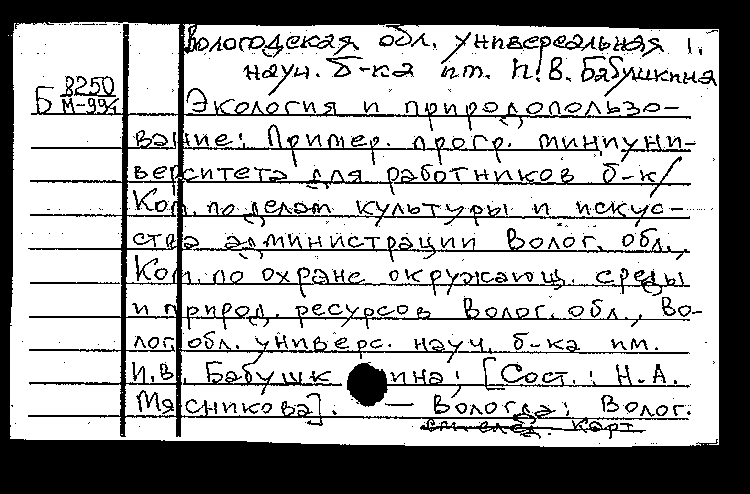 Вологодская обл. универсальная
науч. б-ка им. И.В. Бабушкина
Б 8250
М-994
Экология и природопользо-
вание: Пример. прогр. миниуни-
верситета для работников б-к/
Ком. по делам культуры и искус-
ства администрации Волог. обл.,
Ком. по охране окружающ. среды
и природ. ресурсов Волог. обл., Во-
лог. обл. универс. науч. б-ка им.
И.В. Бабушкина; [Сост.: Н.А.
Мясникова]. — Вологда: Волог.
см. след. карт